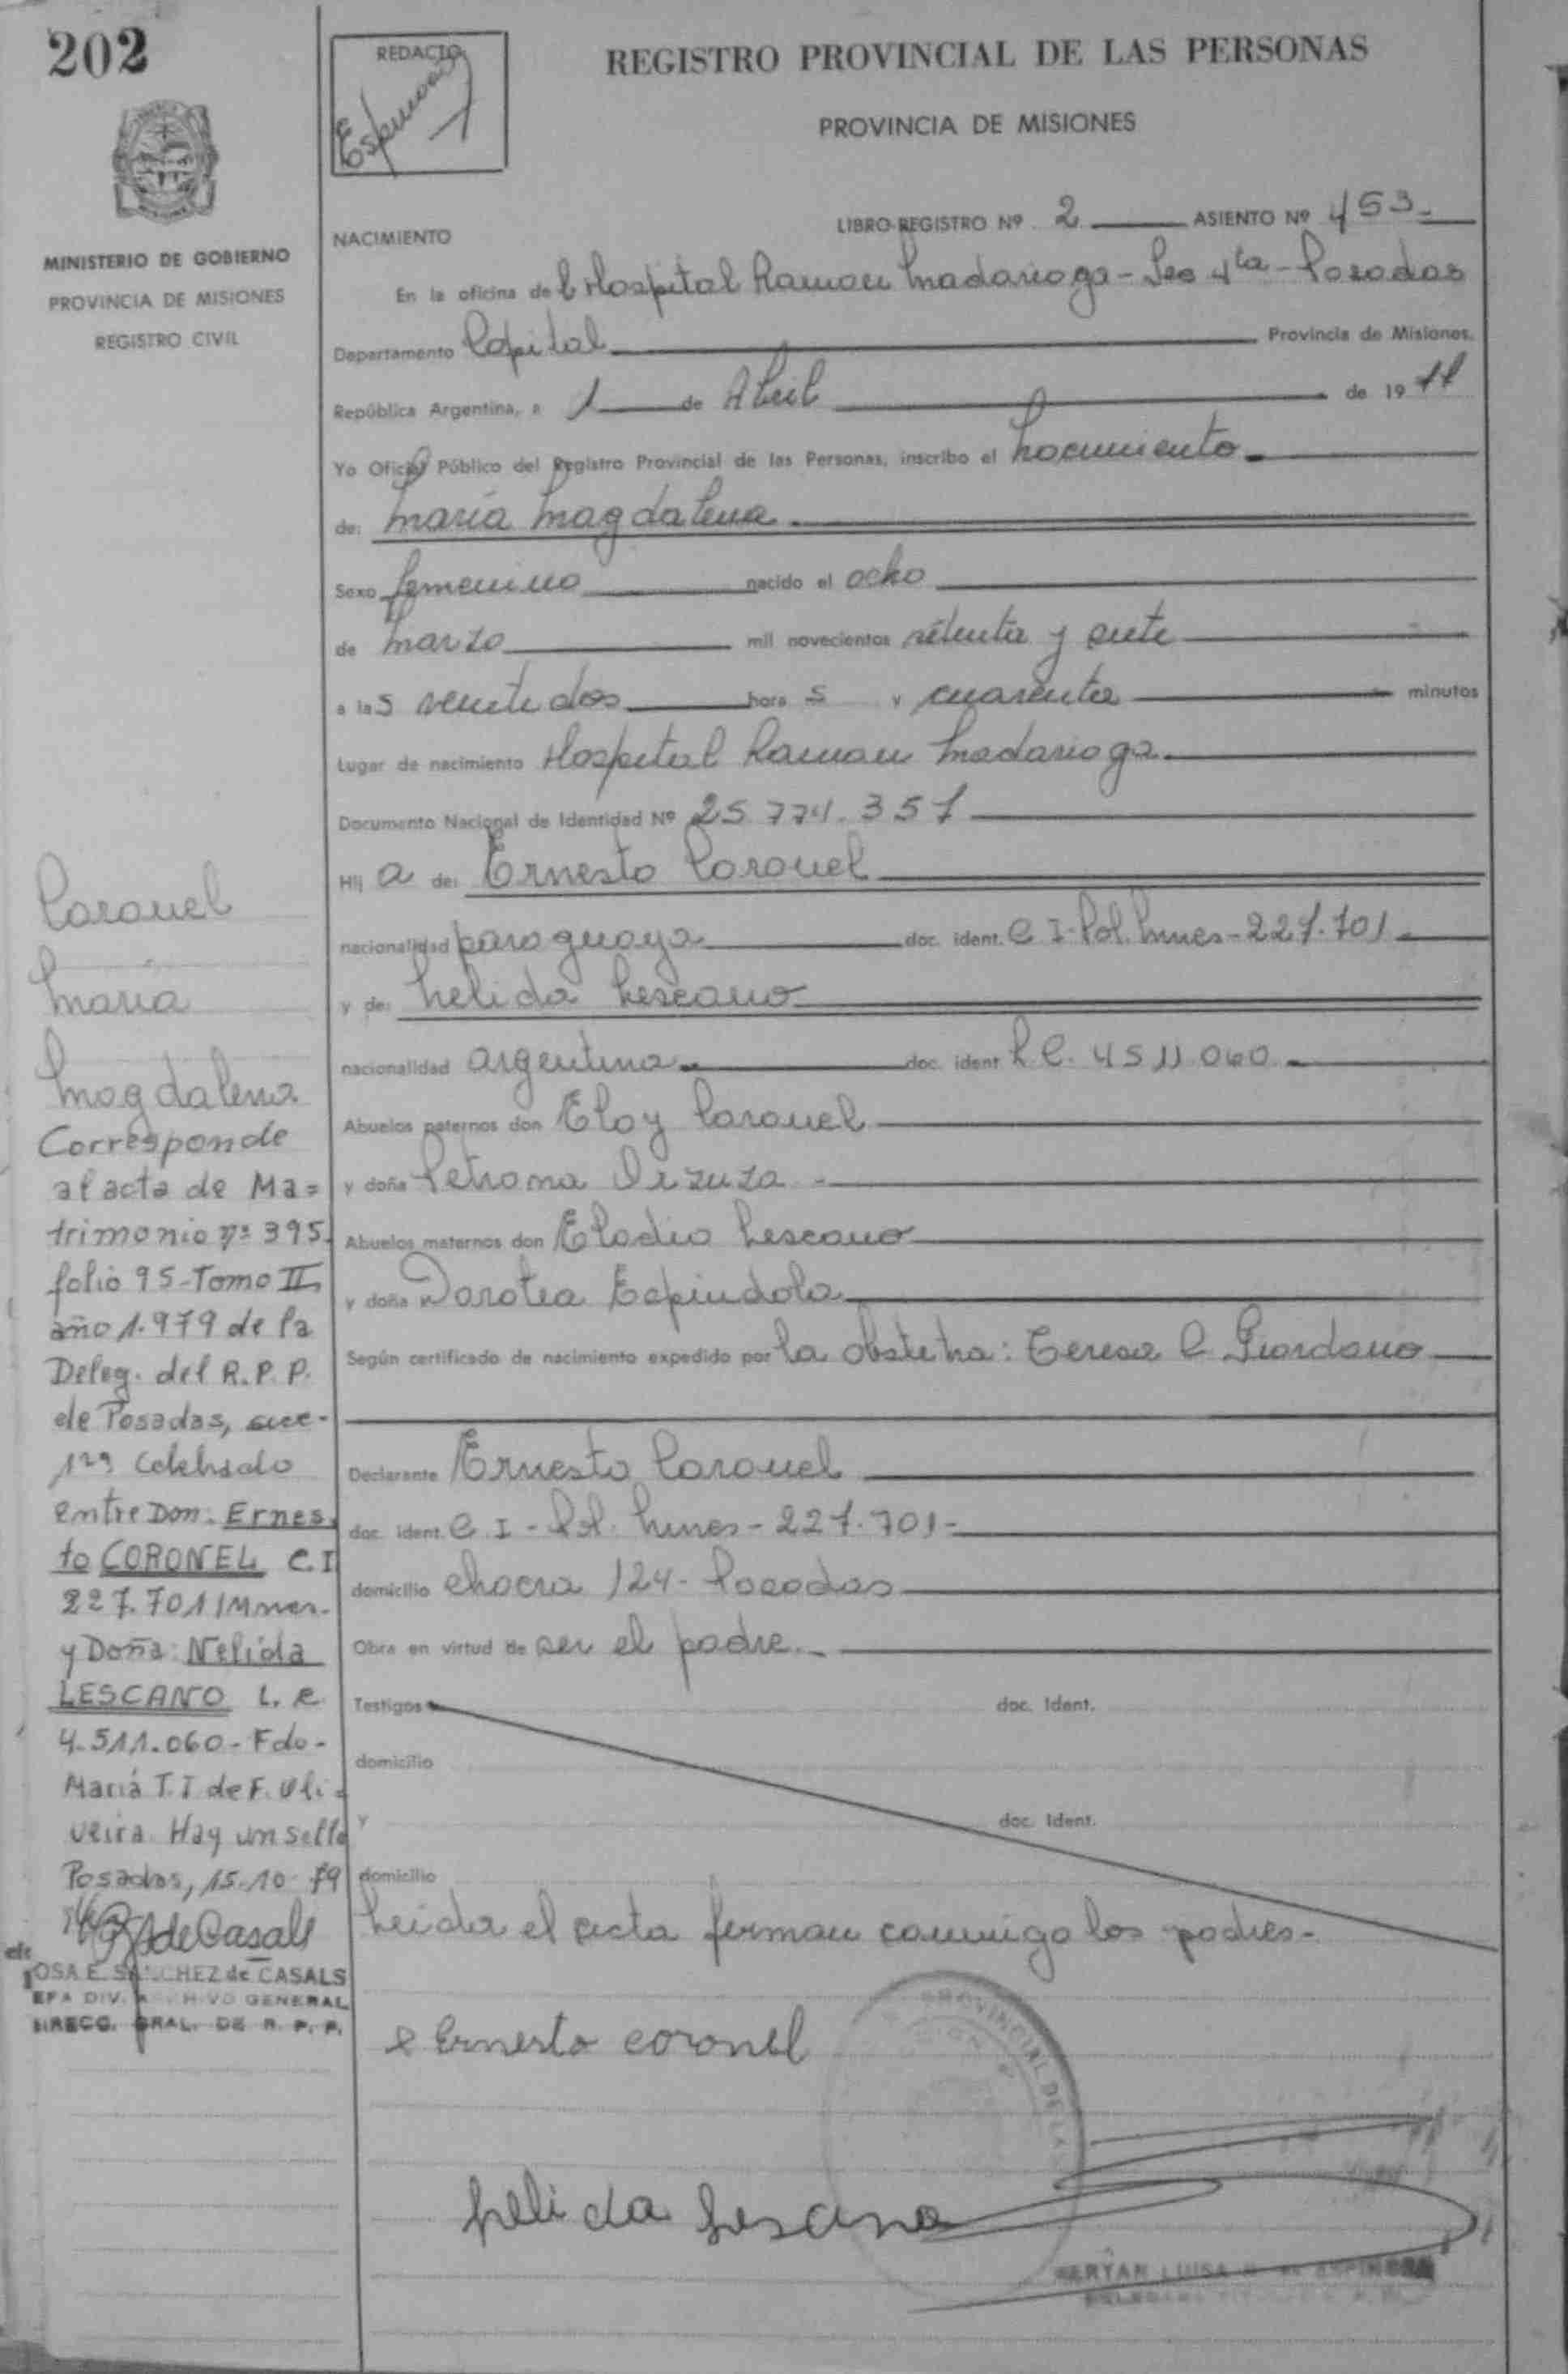 202
REDACTO
REGISTRO PROVINCIAL DE LAS PERSONAS
PROVINCIA DE MISIONES
MINISTERIO DE GOBIERNO
PROVINCIA DE MISIONES
REGISTRO CIVIL
LIBRO-REGISTRO Nº 2 ASIENTO Nº 453-
NACIMIENTO
En la oficina del Hospital Ramon Madariaga - Sec 4ta - Posadas
Departamento Capital Provincia de Misiones.
República Argentina, a 1 de Abril de 1977
Yo Oficial Público del Registro Provincial de las Personas, inscribo el Nacimiento.
de: Maria Magdalena.
Sexo femenino nacido el ocho
de Marzo mil novecientos setenta y siete
a las veintidos horas y cuarenta minutos
Lugar de nacimiento Hospital Ramon Madariaga.
Documento Nacional de Identidad Nº 25.774.357
Hija de: Ernesto Coronel
nacionalidad paraguaya doc. ident. C I - Pol. Mnes - 227.701.
y de: Nelida Lescano
nacionalidad argentina. doc. ident L C. 4511.060.
Abuelos paternos don Eloy Coronel
y doña Petrona
Abuelos maternos don Eladio Lescano
y doña Dorotea Espindola
Según certificado de nacimiento expedido por la obstetra: Teresa C. Giordano
Declarante Ernesto Coronel
doc. ident. C. I - Pol. Mnes - 227.701-
domicilio chacra 124 - Posadas
Obra en virtud de ser el padre.
Testigos doc. Ident.
domicilio
y doc. Ident.
domicilio
Leida el acta firman conmigo los padres.
Ernesto coronel
Nelida Lescano
Coronel
Maria
Magdalena
Corresponde
al acta de Ma=
trimonio nº 395.
folio 95-Tomo II
año 1.979 de la
Deleg. del R.P.P.
de Posadas, secc-
1ra Celebrado
entre Don: Ernes
to CORONEL C.I
227.701/Mnes.
y Doña: Nelida
LESCANO L.C
4.511.060-Fdo-
Maria T.I de F. Oli=
veira. Hay un sello
Posadas, 15-10-79
de Casals
ROSA E. SANCHEZ de CASALS
JEFA DIV. ARCHIVO GENERAL
DIRECC. GRAL. DE R. P. P.
PROVINCIAL DE LAS